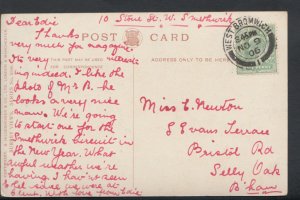 10 Stone St. W. Smethwick
Dear Edie
POST CARD
Thanks
very much you magazine.
THE ADDRESS ONLY TO BE
Its very interes-
ting indeed, I like the
photo of Mr B. he
looks a very nice
man. We're going
to start one for the
Smethwick circuit in
the New Year. What
awful weather we're
having. I havn't been
Love from Edie
WEST BROMWICH
8.45 PM
NO 9
06
Miss E. Newton
Evans Terrace
Bristol Rd
Selly Oak
B'ham